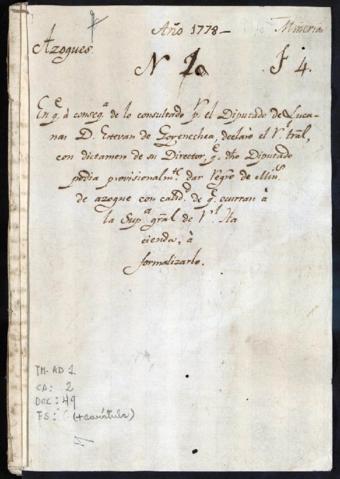 Año 1778
Mineria
Azogues
N 1o
F 4.
En q.e à conseq.a de lo consultado p.r el Diputado de Luca-
nas D. Estevan de Gorenechea, declaró el R.l tral,
con dictamen de su Director, q.e dho Diputado
podia provisionalm.te dar regro de Min.s
de azogue con calid.d de q.e ocurran à
la Sup.a gral de R.l Ha
cienda, à
formalizarlo.
TM-AD 1
CA: 2
DOC: 49
FS: (+ carátula)